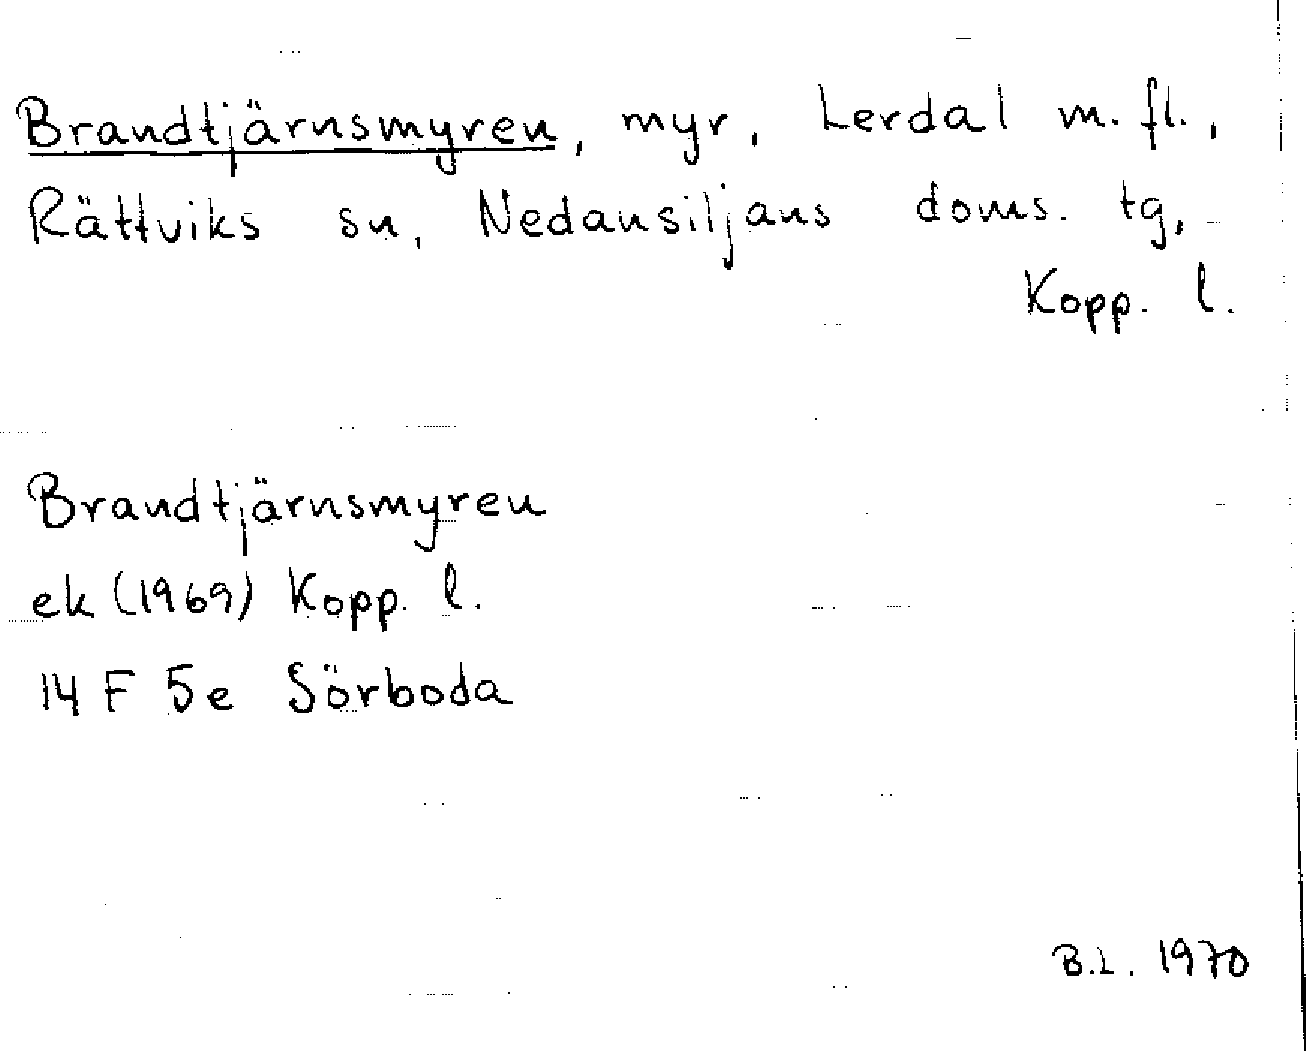 Brandtjärnsmyren, myr, Lerdal m. fl.,
Rättviks sn, Nedansiljans doms. tg,
Kopp. l.
Brandtjärnsmyren
ek (1969) Kopp. l.
14 F 5e Sörboda
B.L. 1970